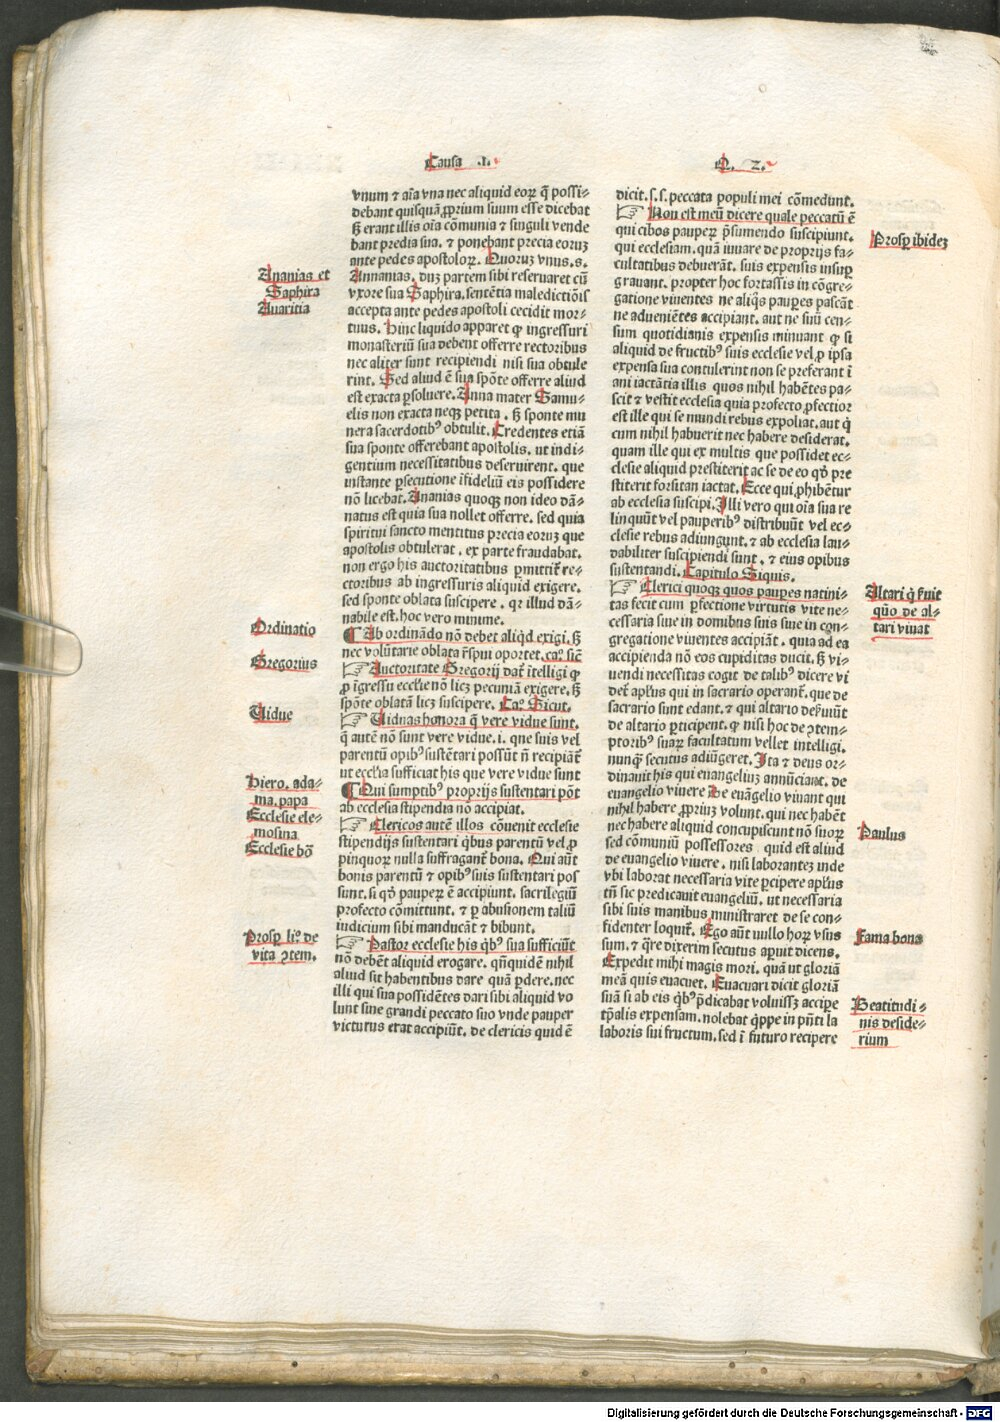 Causa .I.
Q. 2.
vnum ⁊ aīa vna nec aliquid eoꝝ q̄ possi⸗
debant quisquā ꝓprium suum esse dicebat
sꝫ erant illis oīa cōmunia ⁊ singuli vende
bant predia sua. ⁊ ponebant precia eoruꝫ
ante pedes apostoloꝝ. Quoruꝫ vnus.s.
Annanias. duꝫ partem sibi reseruaret cū
vxore sua Saphira. sentētia maledictiōis
accepta ante pedes apostoli cecidit mor⸗
tuus. Hinc liquido apparet ꝙ ingressuri
monasteriū sua debent offerre rectoribus
nec aliter sunt recipiendi nisi sua obtule
rint. Sed aliud ē sua spōte offerre aliud
est exacta ꝑsoluere. Anna mater Samu⸗
elis non exacta neqꝫ petita . sꝫ sponte mu
nera sacerdotibꝰ obtulit. Credentes etiā
sua sponte offerebant apostolis. ut indi⸗
gentium necessitatibus deseruirent. que
instante ꝑsecutione īfideliū eis possidere
nō licebat. Ananias quoqꝫ non ideo dā⸗
natus est quia sua nollet offerre. sed quia
spiritui sancto mentitus precia eoruꝫ que
apostolis obtulerat . ex parte fraudabat.
non ergo his auctoritatibus ꝑmittit̄ re⸗
ctoribus ab ingressuris aliquid exigere.
sed sponte oblata suscipere . qꝛ illud dā⸗
nabile est. hoc vero minime.
¶ Ab ordinādo nō debet aliqd exigi. sꝫ
nec volūtarie oblata r̄spui oportet. caº. sic̄
☞ Auctoritate Gregorij dat̄ ītelligi ꝙ
ꝓ īgressu ecclīe nō licꝫ pecuniā exigere. sꝫ
spōte oblatā licꝫ suscipere. Caº. Sicut.
☞ Uiduas honora q̄ vere vidue sunt.
q̄ autē nō sunt vere vidue .i. que suis vel
parentū opibꝰ sustētari possūt n̄ recipiāt̄
ut ecclīa sufficiat his que vere vidue sunt
¶ Qui sumptibꝰ proprijs sustentari pōt
ab ecclesia stipendia nō accipiat.
☞ Clericos autē illos cōuenit ecclesie
stipendijs sustentari qbus parentū vel ꝓ
pinquoꝝ nulla suffragant̄ bona. Qui aūt
bonis parentū ⁊ opibꝰ suis sustentari pos
sunt. si qd̓ pauperꝝ ē accipiunt. sacrilegiū
profecto cōmittunt. ⁊ ꝑ abusionem taliū
iudicium sibi manducāt ⁊ bibunt.
☞ Pastor ecclesie his qbꝰ sua sufficiūt
nō debēt aliquid erogare. qn̄quidē nihil
aliud sit habentibus dare quā ꝑdere. nec
illi qui sua possidētes dari sibi aliquid vo
lunt sine grandi peccato suo vnde pauper
victurus erat accipiūt. de clericis quid ē
Ananias et
Saphira
Auaritia
Ordinatio
Gregorius
Uidue
Hiero. ada⸗
ma. papa
Ecclesie ele⸗
mosina
Ecclesie bō
Prosꝑ liº. de
vita ꝯtem.
dicit. s.s. peccata populi mei cōmedunt.
☞ Non est meū dicere quale peccatū ē
qui cibos pauperꝝ p̄sumendo suscipiunt.
qui ecclesiam. quā iuuare de proprijs fa⸗
cultatibus debuerāt. suis expensis insuꝑ
grauant. propter hoc fortassis in cōgre⸗
gatione viuentes ne aliqs pauꝑes pascāt
ne adueniētes accipiant. aut ne suū cen⸗
sum quotidianis expensis minuant ꝙ si
aliquid de fructibꝰ suis ecclesie vel ꝓ ipsa
expensa sua contulerint non se preferant ī
ani iactātia illis quos nihil habētes pa⸗
scit ⁊ vestit ecclesia quia profecto ꝑfectior
est ille qui se mundi rebus expoliat. aut q̇
cum nihil habuerit nec habere desiderat.
quam ille qui ex multis que possidet ec⸗
clesie aliquid prestiterit ac se de eo qd̓ pre
stiterit forsitan iactat. Ecce qui ꝓhibētur
ab ecclesia suscipi. Illi vero qui oīa sua re
linquūt vel pauperibꝰ distribuūt vel ec⸗
clesie rebus adiungunt. ⁊ ab ecclesia lau⸗
dabiliter suscipiendi sunt. ⁊ eius opibus
sustentandi. Capitulo Siquis.
☞ Clerici quoqꝫ quos pauꝑes natiui⸗
tas fecit cum ꝑfectione virtutis vite ne⸗
cessaria siue in domibus suis siue in con⸗
gregatione viuentes accipiāt . quia ad ea
accipienda nō eos cupiditas ducit. sꝫ vi⸗
uendi necessitas cogit de talibꝰ dicere vi
det̄ apl̓us qui in sacrario operant̄. que de
sacrario sunt edant. ⁊ qui altario deẜuiūt
de altario ꝑticipent. ꝙ nisi hoc de ꝯtem⸗
ptoribꝰ suaꝝ facultatum vellet intelligi.
nunqꝫ secutus adiūgeret. Ita ⁊ deus or⸗
dinauit his qui euangeliuꝫ annūciant. de
euangelio viuere De euāgelio viuant qui
nihil habere ꝓpriuꝫ volunt. qui nec habēt
nec habere aliquid concupiscunt nō suoꝝ
sed cōmuniū possessores quid est aliud
de euangelio viuere . nisi laborantes inde
vbi laborat necessaria vite ꝑcipere apl̓us
tn̄ sic predicauit euangeliū. ut necessaria
sibi suis manibus ministraret de se con⸗
fidenter loquit̄. Ego aūt nullo hoꝝ vsus
sum. ⁊ q̄re dixerim secutus aꝑuit dicens.
Expedit mihi magis mori. quā ut gloriā
meā quis euacuet. Euacuari dicit gloriā
suā si ab eis qbꝰ p̄dicabat voluissꝫ acciꝑe
tꝑalis expensam. nolebat q̇ppe in pn̄ti la
laboris sui fructum. sed ī futuro recipere
Prosꝑ ibideꝫ
Altari q̇ ẜuit
qūo de al⸗
tari viuat
Paulus
Fama bona
Beatitudi⸗
nis deside⸗
rium
Digitalisierung gefördert durch die Deutsche Forschungsgemeinschaft - DFG